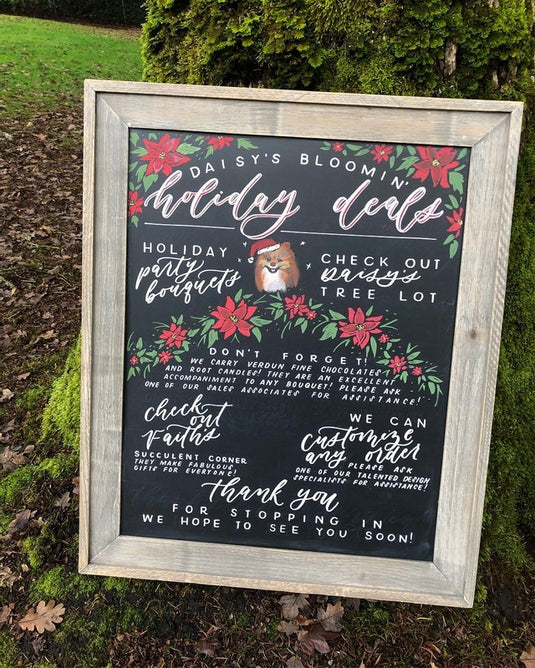 DAISY'S BLOOMIN'
holiday deals
HOLIDAY
party
bouquets
CHECK OUT
DAISY'S
TREE LOT
DON'T FORGET!
WE CARRY VERDUN FINE CHOCOLATES
AND ROOT CANDLES! THEY ARE AN EXCELLENT
ACCOMPANIMENT TO ANY BOUQUET! PLEASE ASK
ONE OF OUR SALES ASSOCIATES FOR ASSISTANCE!
check
out
Faith's
SUCCULENT CORNER
THEY MAKE FABULOUS
GIFTS FOR EVERYONE!
WE CAN
Customize
any order
PLEASE ASK
ONE OF OUR TALENTED DESIGN
SPECIALISTS FOR ASSISTANCE!
thank you
FOR STOPPING IN
WE HOPE TO SEE YOU SOON!